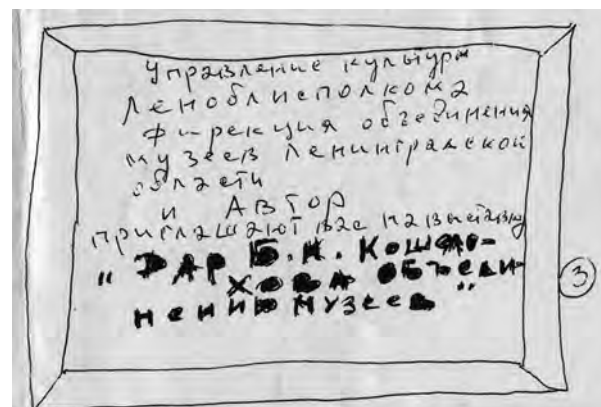 Управление культуры
Леноблисполкома
Дирекция объединения
музеев Ленинградской
области
и АВТОР
приглашают вас на выставку
"ДАР Б.Н. Кошело-
ХОВА ОБЪЕДИ-
НЕНИЮ МУЗЕЕВ"
3